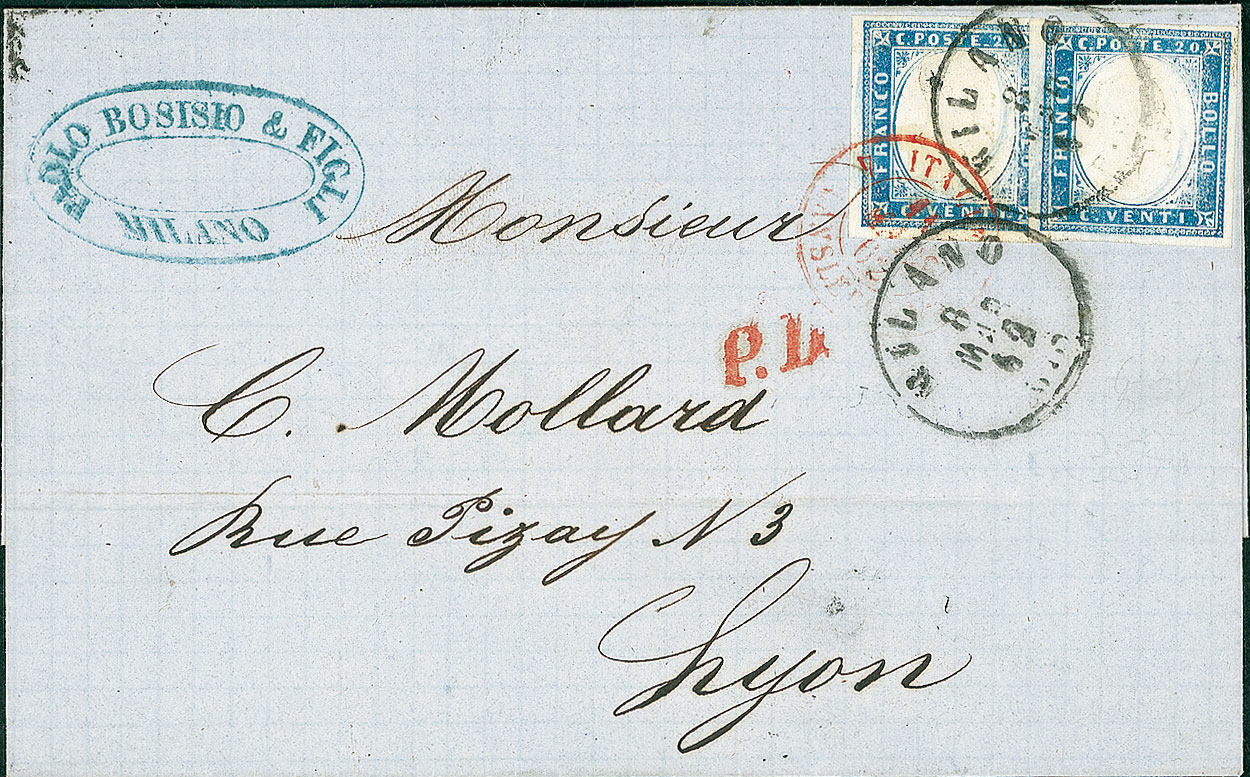 PAOLO BOSISIO & FIGLI
MILANO
C. POSTE. 20
FRANCO
C. VENTI
C. POSTE. 20
FRANCO
BOLLO
C. VENTI
MILANO
8
MILANO
8
MAR
62
P.D
Monsieur
C. Mollard
Rue Pizay N 3
Lyon